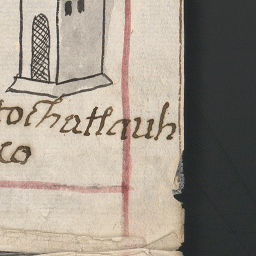 tochatlauh
co